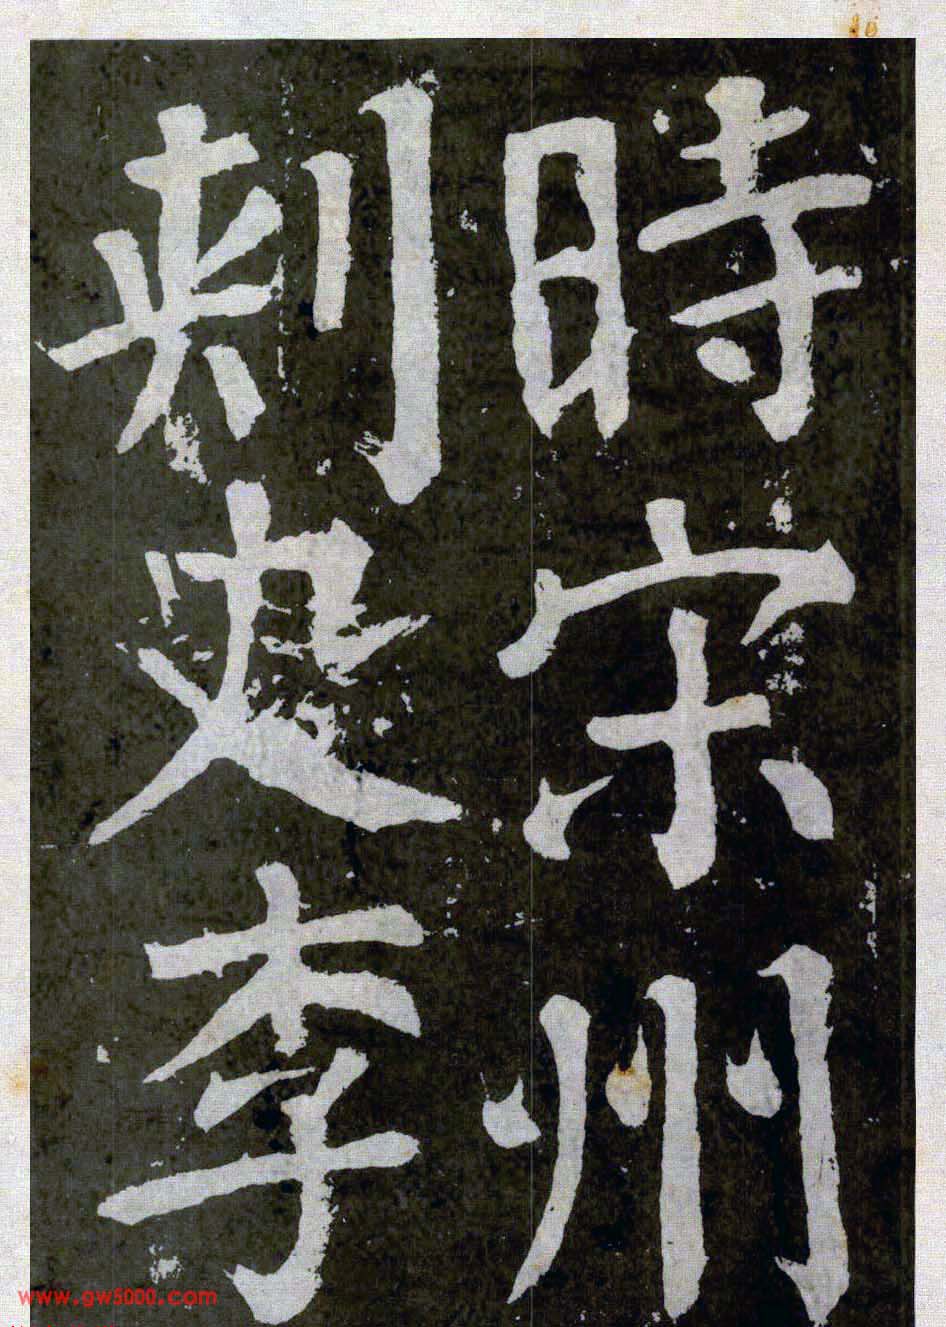 時宋州
刺史李
www.gw5000.com